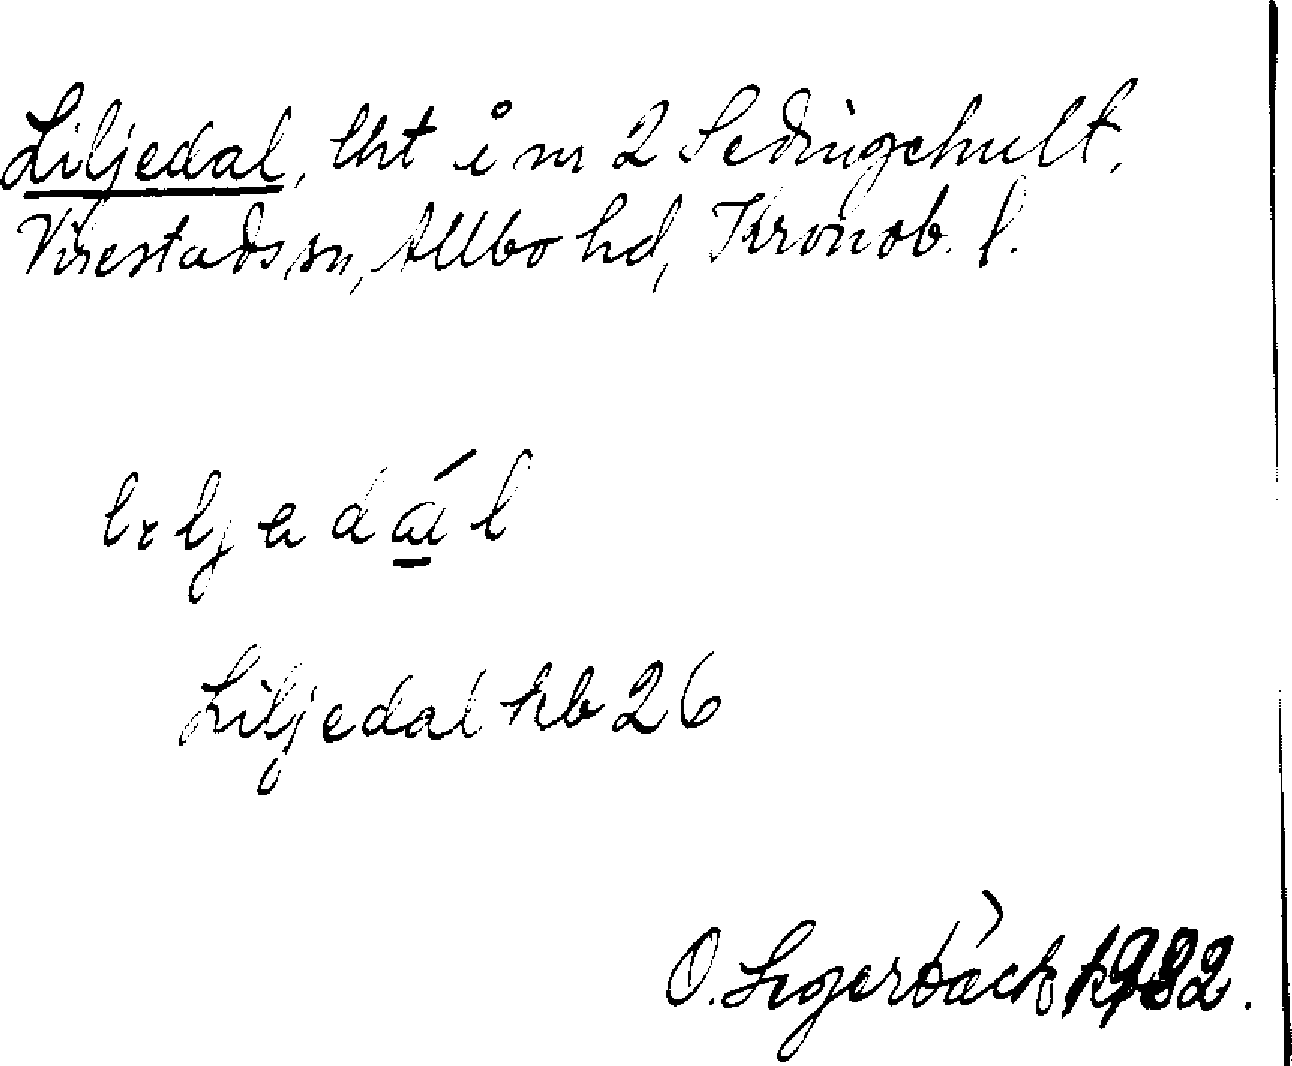 Liljedal, lht i m 2 Sedingehult,
Virestads sn, Allbo hd, Kronob. l.
lıljedál
Liljedal hb 26
O. 1932.